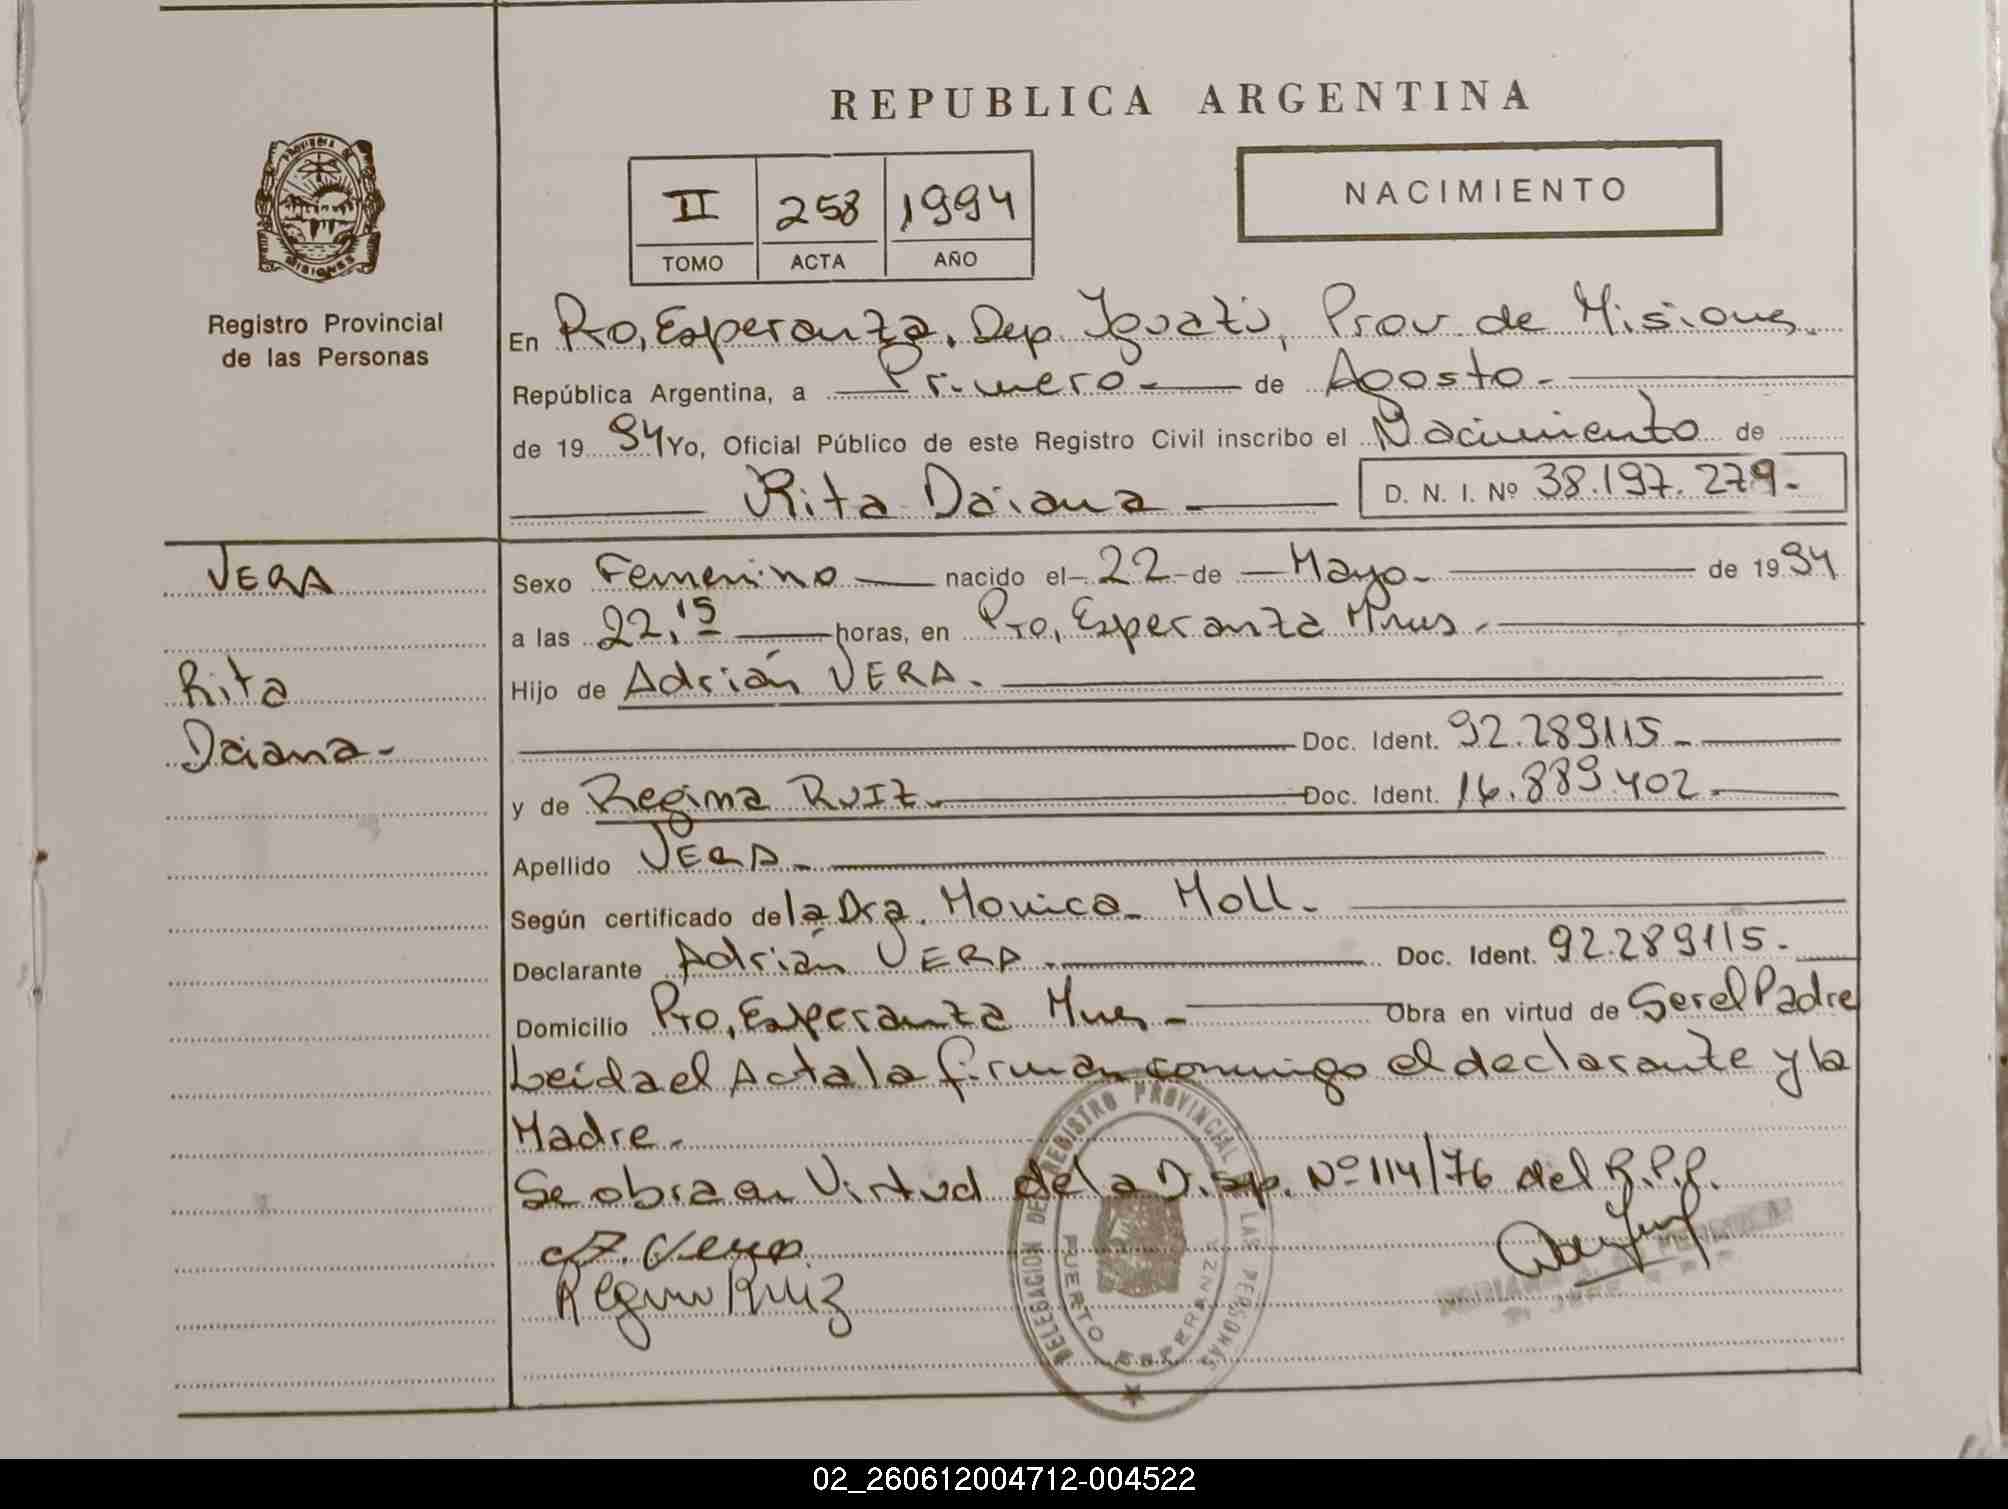 REPUBLICA ARGENTINA
PROVINCIA DE
MISIONES
Registro Provincial
de las Personas
II 258 1994
TOMO ACTA AÑO
NACIMIENTO
En Pto, Esperanza, Dep. Iguazú, Prov de Misiones.
República Argentina, a Primero.- de Agosto.-
de 19 94 Yo, Oficial Público de este Registro Civil inscribo el Nacimiento de
Rita Daiana
D. N. I. Nº 38.197.279.-
VERA
Rita
Daiana-
Sexo Femenino nacido el 22 de Mayo- de 1994
a las 22,15 horas, en Pto, Esperanza Mnes.-
Hijo de Adrián VERA.
Doc. Ident. 92.289115-
y de Regina RUIZ. Doc. Ident. 16.889.402-
Apellido VERA-
Según certificado de la Dra. Monica Moll.-
Declarante Adrián VERA. Doc. Ident. 92.289115.-
Domicilio Pto, Esperanza Mnes- Obra en virtud de Ser el Padre
Leida el Acta la firman conmigo el declarante y la
Madre.-
Se obra en Virtud de la Disp. Nº 114/76 del R.P.P.
A. Vera
Regina Ruiz
DELEGACION DEL REGISTRO PROVINCIAL DE LAS PERSONAS
PUERTO ESPERANZA
02_260612004712-004522